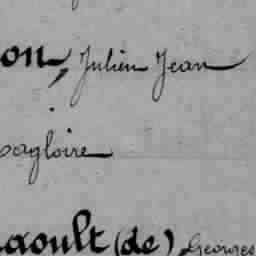 on, Julien Jean
agloire
aoult (de) Georges